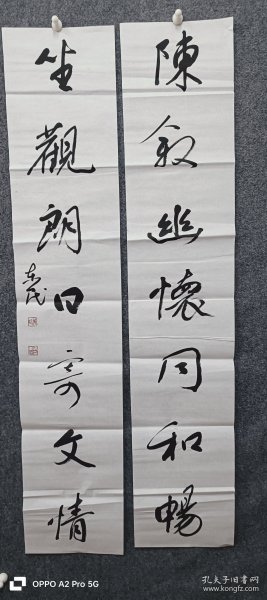 陳叙幽懷同和暢
坐觀朗日寄文情
OPPO A2 Pro 5G
孔夫子旧书网
www.kongfz.com